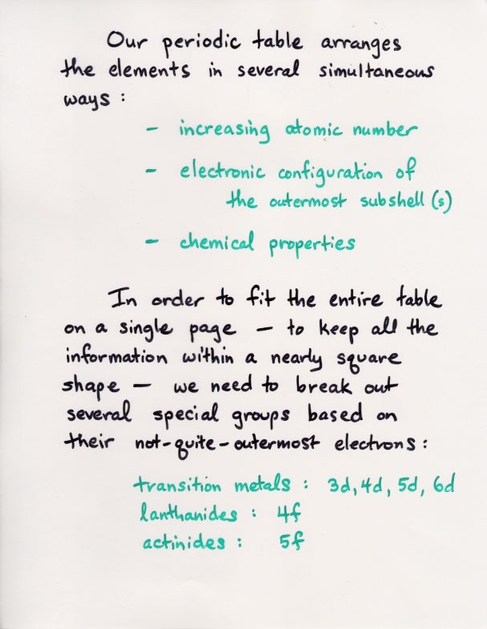 Our periodic table arranges
the elements in several simultaneous
ways :
- increasing atomic number
- electronic configuration of
the outermost subshell (s)
- chemical properties
In order to fit the entire table
on a single page - to keep all the
information within a nearly square
shape - we need to break out
several special groups based on
their not-quite-outermost electrons :
transition metals : 3d, 4d, 5d, 6d
lanthanides : 4f
actinides : 5f